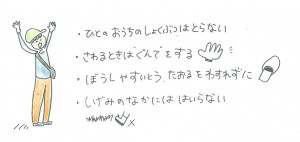 ・ひとのおうちのしょくぶつはとらない
・さわるときは"ぐんて"をする
・ぼうしやすいとう、たおるをわすれずに
・しげみのなかにははいらない